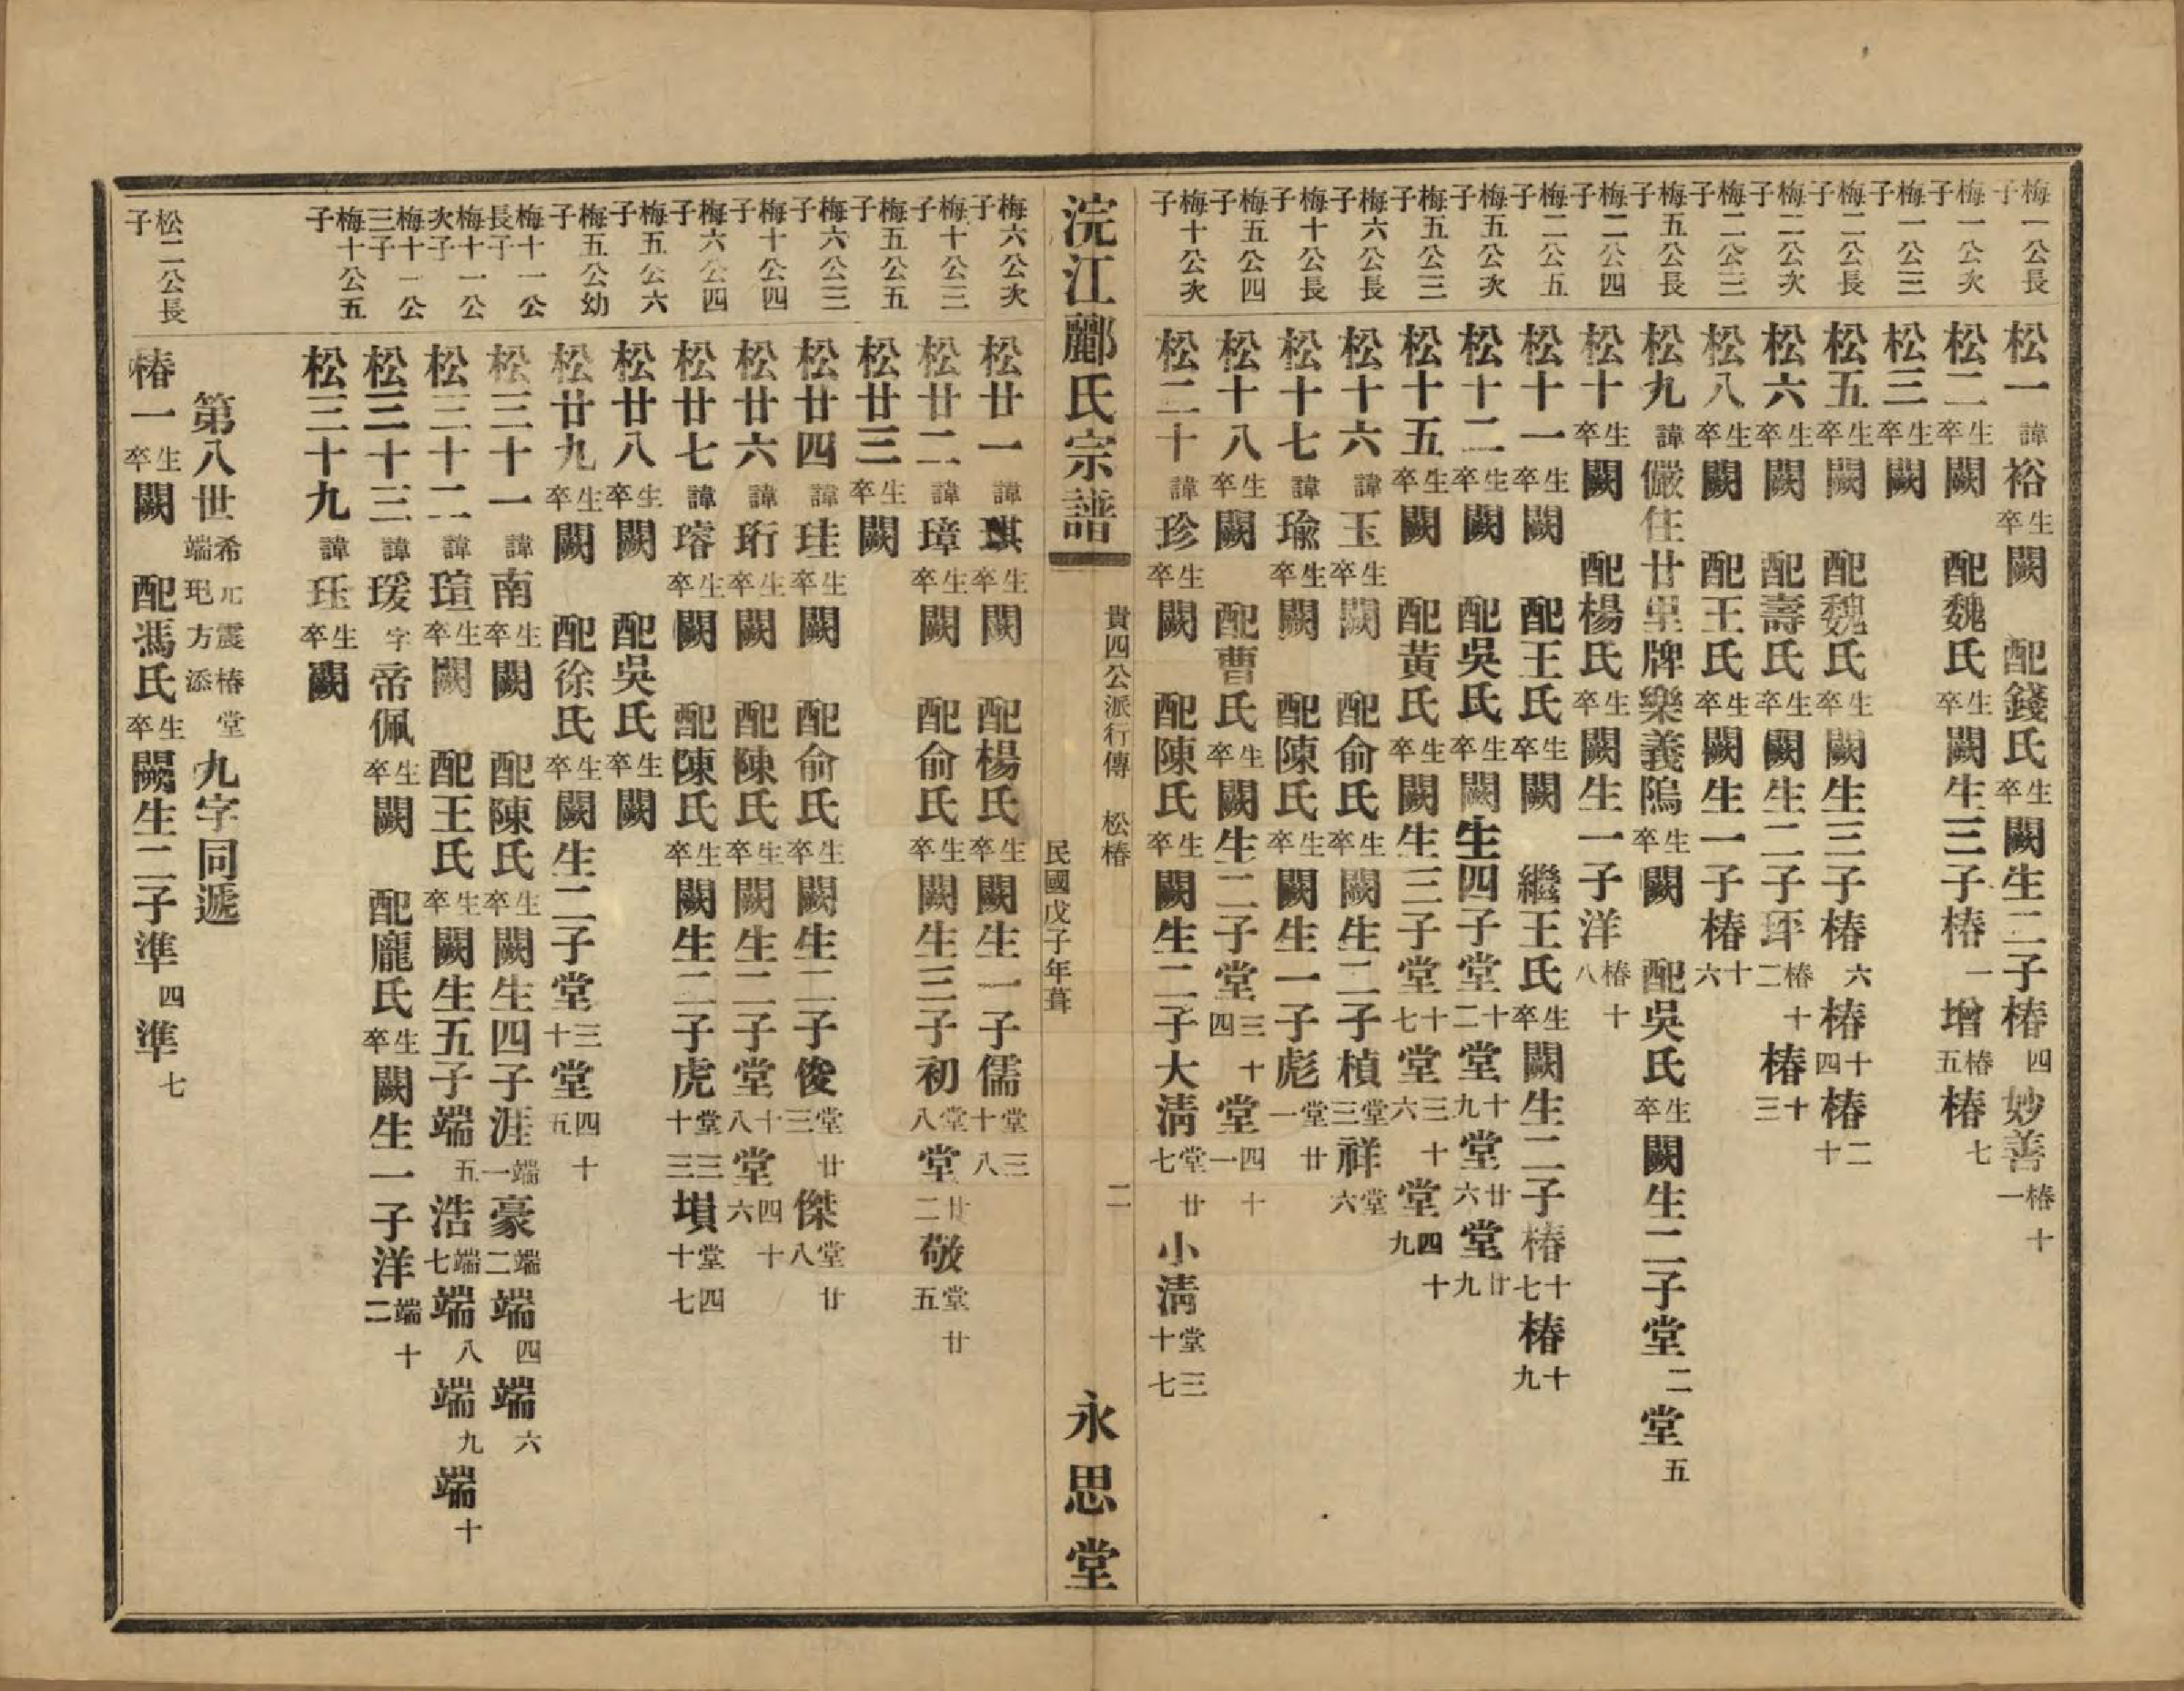 梅一公長子 松一 諱裕 生卒闕 配錢氏 生卒闕 生二子 椿四 妙善 椿十一
梅一公次子 松二 生卒闕 配魏氏 生卒闕 生三子 椿一 增 椿五 椿七
梅一公三子 松三 生卒闕
梅二公長子 松五 生卒闕 配魏氏 生卒闕 生三子 椿六 椿十四 椿二十
梅二公次子 松六 生卒闕 配壽氏 生卒闕 生二子 琢 椿十二 椿十三
梅二公三子 松八 生卒闕 配王氏 生卒闕 生一子 椿十六
梅五公長子 松九 諱儼 住廿里牌樂義隖 生卒闕 配吳氏 生卒闕 生二子 堂二 堂五
梅二公四子 松十 生卒闕 配楊氏 生卒闕 生一子 洋 椿十八
梅二公五子 松十一 生卒闕 配王氏 生卒闕 繼王氏 生卒闕 生二子 椿十七 椿十九
梅五公次子 松十二 生卒闕 配吳氏 生卒闕 生四子 堂十二 堂十九 堂廿六 堂廿九
梅五公三子 松十五 生卒闕 配黃氏 生卒闕 生三子 堂十七 堂三十六 堂四十九
梅六公長子 松十六 諱玉 生卒闕 配俞氏 生卒闕 生二子 楨 堂三 祥 堂六
梅十公長子 松十七 諱瑜 生卒闕 配陳氏 生卒闕 生一子 彪 堂廿一
梅五公四子 松十八 生卒闕 配曹氏 生卒闕 生二子 堂三十四 堂四十一
梅十公次子 松二十 諱珍 生卒闕 配陳氏 生卒闕 生二子 大淸 堂廿七 小淸 堂三十七
浣江酈氏宗譜 貴四公派行傳 松椿 民國戊子年葺 二 永思堂
梅六公次子 松廿一 諱琪 生卒闕 配楊氏 生卒闕 生一子 儒 堂三十八
梅十公三子 松廿二 諱璋 生卒闕 配俞氏 生卒闕 生三子 初 堂八 堂廿二 敬 堂廿五
梅五公五子 松廿三 生卒闕
梅六公三子 松廿四 諱珪 生卒闕 配俞氏 生卒闕 生二子 俊 堂廿三 傑 堂廿八
梅十公四子 松廿六 諱珩 生卒闕 配陳氏 生卒闕 生二子 堂十八 堂四十六
梅六公四子 松廿七 諱瑢 生卒闕 配陳氏 生卒闕 生二子 虎 堂三十三 塤 堂四十七
梅五公六子 松廿八 生卒闕 配吳氏 生卒闕
梅五公幼子 松廿九 生卒闕 配徐氏 生卒闕 生二子 堂三十 堂四十五
梅十一公長子 松三十一 諱南 生卒闕 配陳氏 生卒闕 生四子 涯 端一 豪 端二 端四 端六
梅十一公次子 松三十二 諱瑄 生卒闕 配王氏 生卒闕 生五子 端五 浩 端七 端八 端九 端十
梅十一公三子 松三十三 諱瑗 字帝佩 生卒闕 配龐氏 生卒闕 生一子 洋 端十二
梅十公五子 松三十九 諱珏 生卒闕
第八世 希元震椿堂端玘方添 九字同遞
松二公長子 椿一 生卒闕 配馮氏 生卒闕 生二子 準四 準七